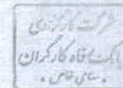 شرکت کارگزاری
بانک رفاه کارگران
سهامی خاص